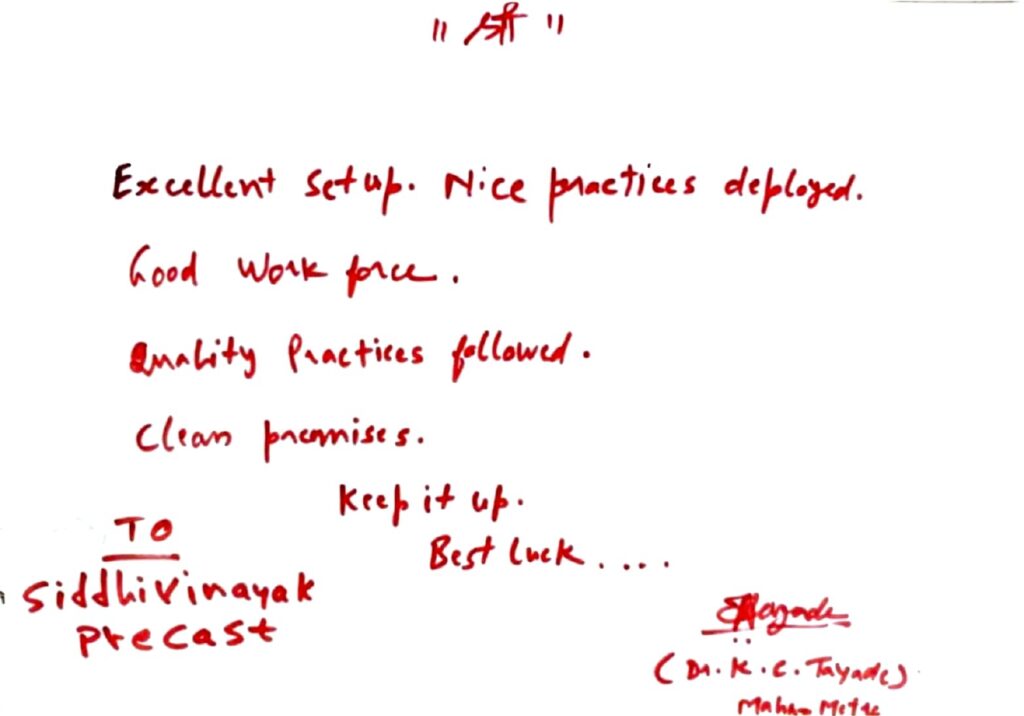 ॥ श्री ॥
Excellent setup. Nice practices deployed.
Good work force.
Quality Practices followed.
Clean premises.
Keep it up.
Best luck....
TO
Siddhivinayak
Precast
(Dr. K. C. Tayade)
Maha Metro